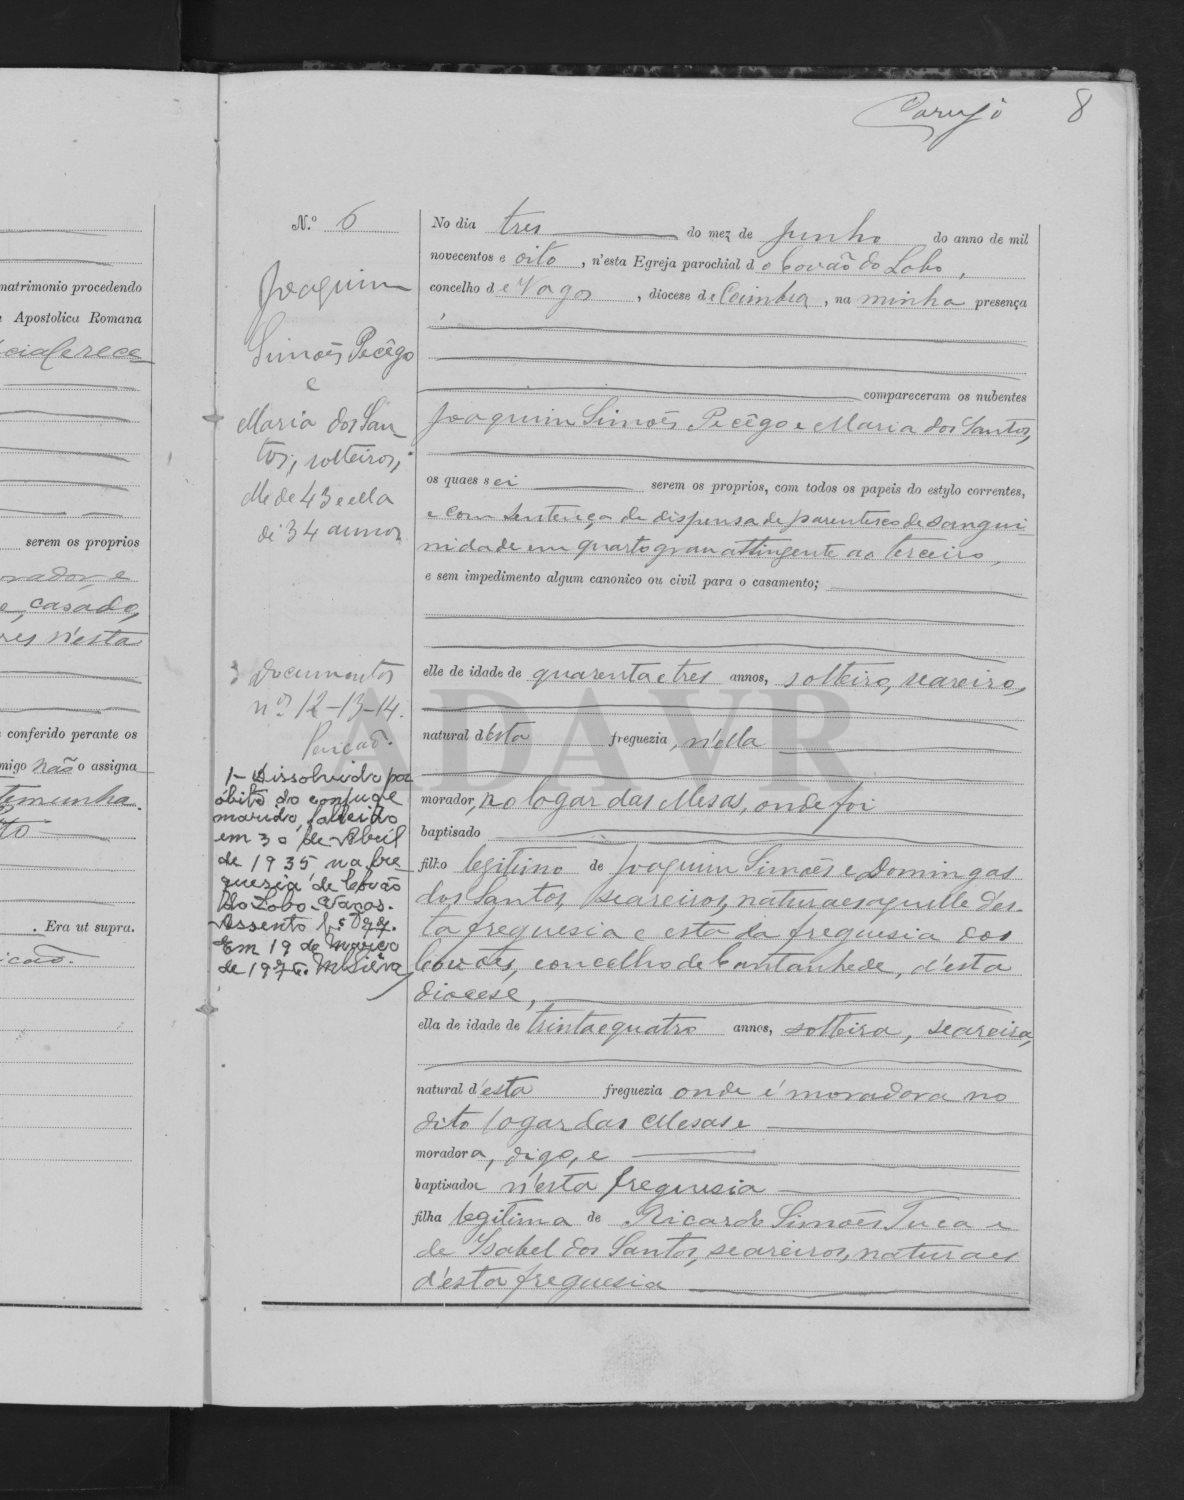 Carujo 8
matrimonio procedendo
Apostolica Romana
serem os proprios
casado,
n'esta
conferido perante os
migo não o assigna
temunha.
. Era ut supra.
N.º 6
Joaquim
Simões Pecêgo
e
Maria dos San-
tos, solteiros,
elle de 43 e ella
de 34 annos
3 Documentos
nos 12-13-14.
1- Dissolvido por
óbito do conjuge
marido, falecido
em 30 de Abril
de 1935 na fre
guesia de Covão
do Lobo - Vagos.
Assento
Em 19 de Março
de 1976. MSilva
No dia tres do mez de Junho do anno de mil
novecentos e oito, n'esta Egreja parochial do Covão do Lobo,
concelho de Vagos, diocese de Coimbra, na minha presença
compareceram os nubentes
Joaquim Simões Pecêgo e Maria dos Santos,
os quaes sei serem os proprios, com todos os papeis do estylo correntes,
e com sentença de dispensa de parentesco de sangui-
nidade em quarto grau attingente ao terceiro,
e sem impedimento algum canonico ou civil para o casamento;
elle de idade de quarenta e tres annos, solteiro, seareiro,
natural d'esta freguezia, n'ella
morador, no logar das Mesas, onde foi
baptisado
filho legitimo de Joaquim Simões e Domingas
dos Santos, seareiros, naturaes aquelle d'es-
ta freguesia e esta da freguesia dos
Covões, concelho de Cantanhede, d'esta
diocese,
ella de idade de trinta e quatro annos, solteira, seareira,
natural d'esta freguezia onde é moradora no
dito logar das Mesas e
moradora, digo, e
baptisada n'esta freguesia
filha legitima de Ricardo Simões Tuca e
de Isabel dos Santos, seareiros, naturaes
d'esta freguesia
ADAVR